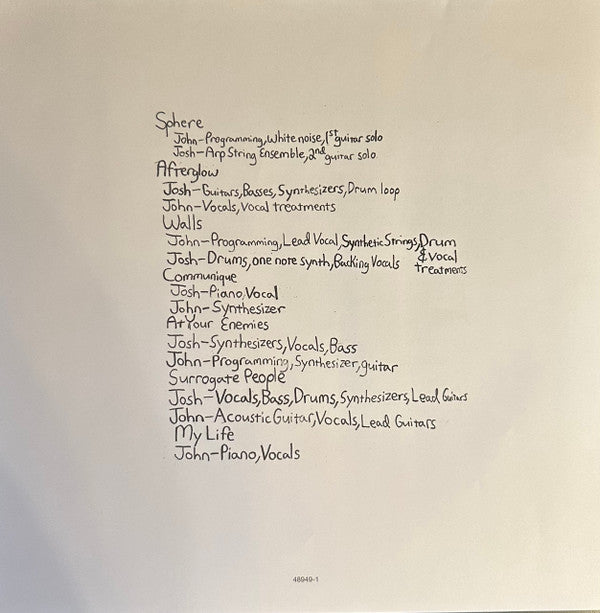 Sphere
John-Programming, White noise, 1st guitar solo
Josh-Arp String Ensemble, 2nd guitar solo.
Afterglow
Josh-Guitars, Basses, Synthesizers, Drum loop
John-Vocals, Vocal treatments
Walls
John-Programming, Lead Vocal, Synthetic Strings, Drum
& vocal
treatments
Josh-Drums, one note synth, Backing Vocals
Communique
Josh-Piano, Vocal
John-Synthesizer
At Your Enemies
Josh-Synthesizers, Vocals, Bass
John-Programming, Synthesizer, guitar
Surrogate People
Josh-Vocals, Bass, Drums, Synthesizers, Lead Guitars
John-Acoustic Guitar, Vocals, Lead Guitars
My Life
John-Piano, Vocals
48949-1